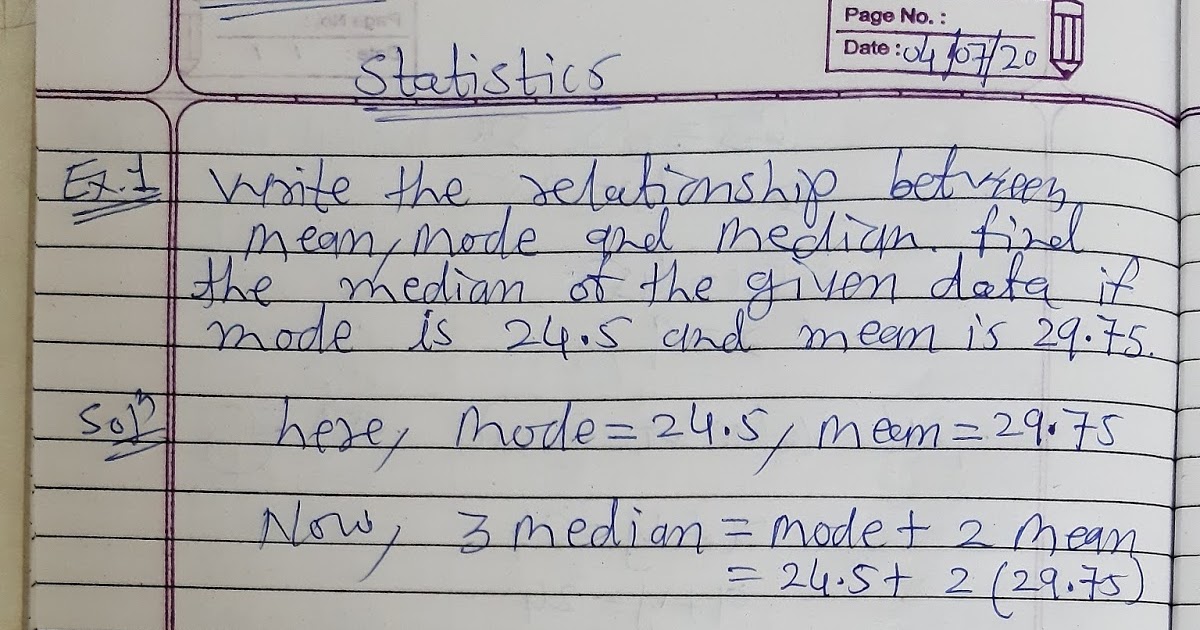 Page No. :
Date : 04/07/20
Statistics
Ex.1 Write the relationship between
mean, mode and median. find
the median of the given data if
mode is 24.5 and mean is 29.75.
Solⁿ here, mode = 24.5, mean = 29.75
Now, 3 median = mode + 2 mean
= 24.5 + 2 (29.75)